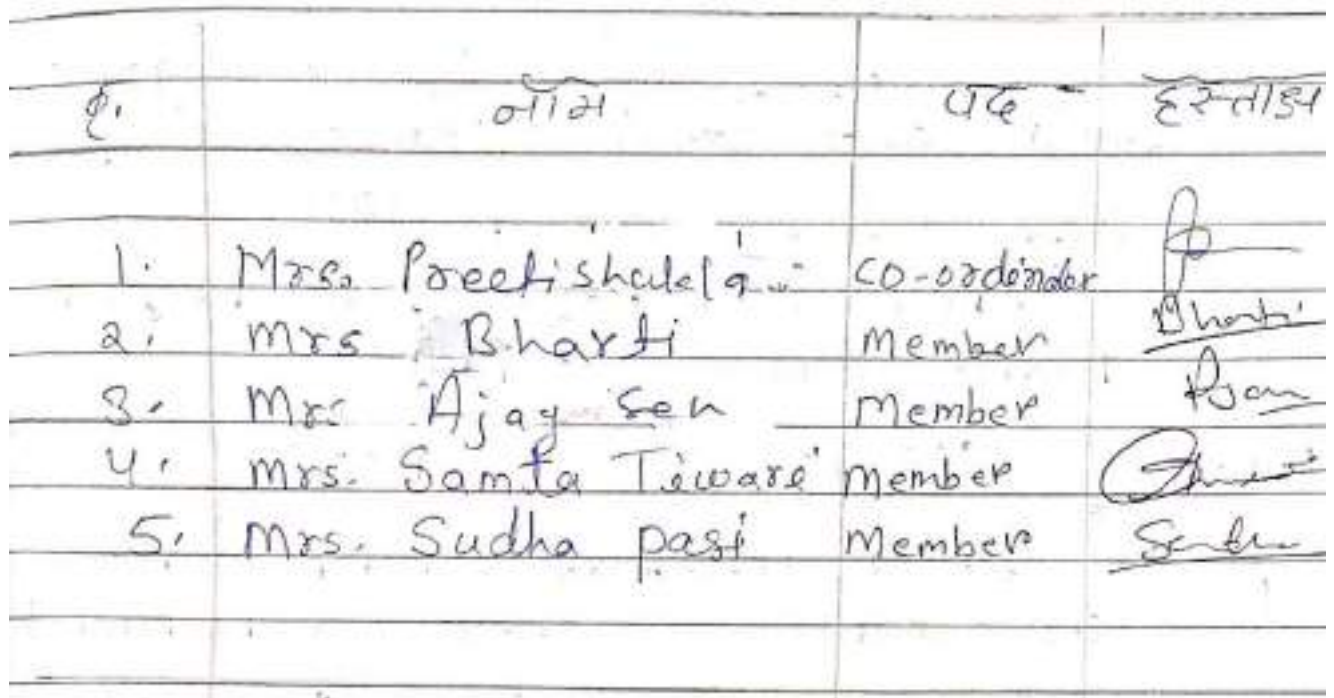 क्र. नाम पद हस्ताक्ष
1. Mrs. Preetishukla co-ordinator
2. Mrs Bharti Member Bharti
3. Mr. Ajay Sen Member
4. Mrs. Samta Tiwari Member
5. Mrs. Sudha pasi Member